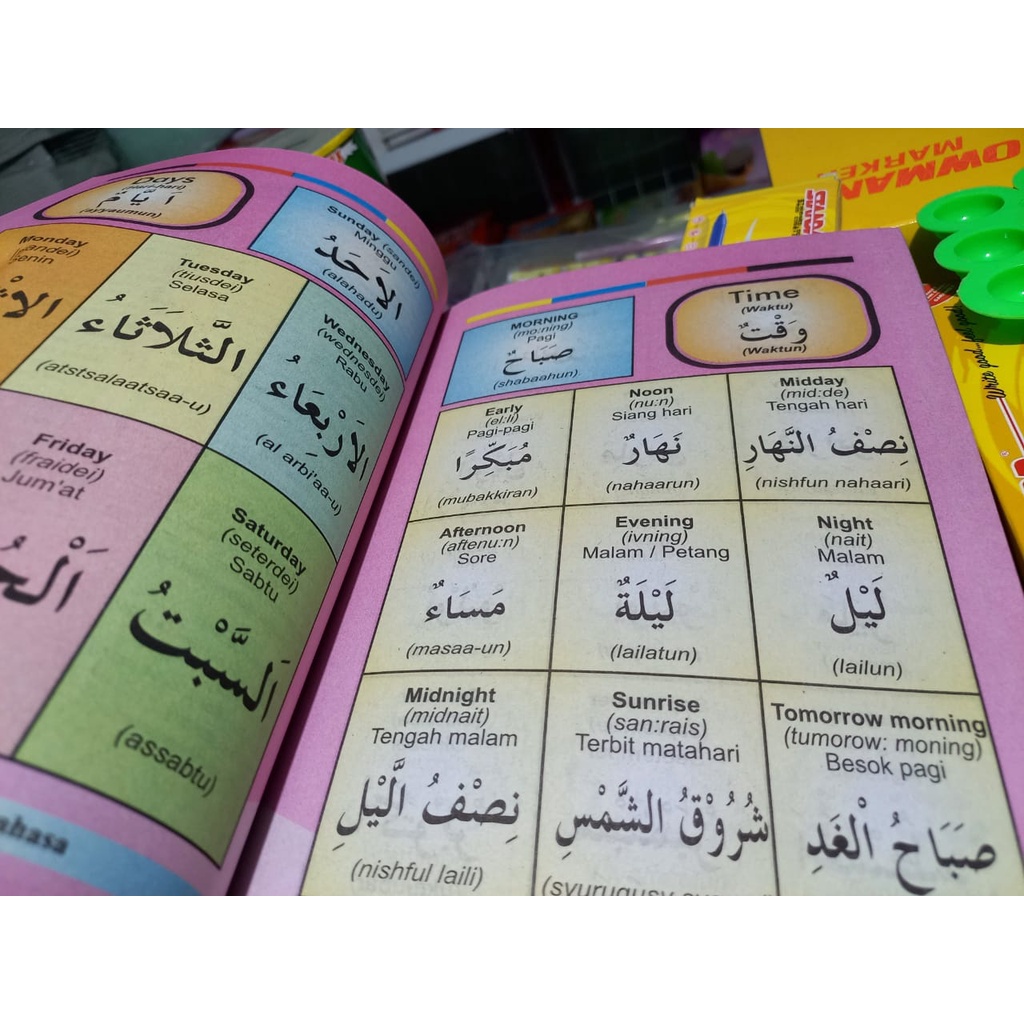 Days
(Hari-hari)
اَيَّامٌ
(ayyaumun)
Sunday (sandei)
Minggu
الاَحَدُ
(alahadu)
Monday
Senin
Tuesday
(tiusdei)
Selasa
الثَّلاَثَاءُ
(atstsalaatsaa-u)
Wednesday
(wednesdei)
Rabu
الاَرْبِعَاءُ
(al arbi'aa-u)
Friday
(fraidei)
Jum'at
Saturday
(seterdei)
Sabtu
اَلسَّبْتُ
(assabtu)
Time
(Waktu)
وَقْتٌ
(Waktun)
MORNING
(mo:ning)
Pagi
صَبَاحٌ
(shabaahun)
Early
(el:li)
Pagi-pagi
مُبَكِّرًا
(mubakkiran)
Noon
(nu:n)
Siang hari
نَهَارٌ
(nahaarun)
Midday
(mid:de)
Tengah hari
نِصْفُ النَّهَارِ
(nishfun nahaari)
Afternoon
(aftenu:n)
Sore
مَسَاءٌ
(masaa-un)
Evening
(ivning)
Malam / Petang
لَيْلَةٌ
(lailatun)
Night
(nait)
Malam
لَيْلٌ
(lailun)
Midnight
(midnait)
Tengah malam
نِصْفُ الَّيْلِ
(nishful laili)
Sunrise
(san:rais)
Terbit matahari
شُرُوْقُ الشَّمْسِ
Tomorrow morning
(tumorow: moning)
Besok pagi
صَبَاحُ الْغَدِ
OWMAN
MARKER
Write good-feel good